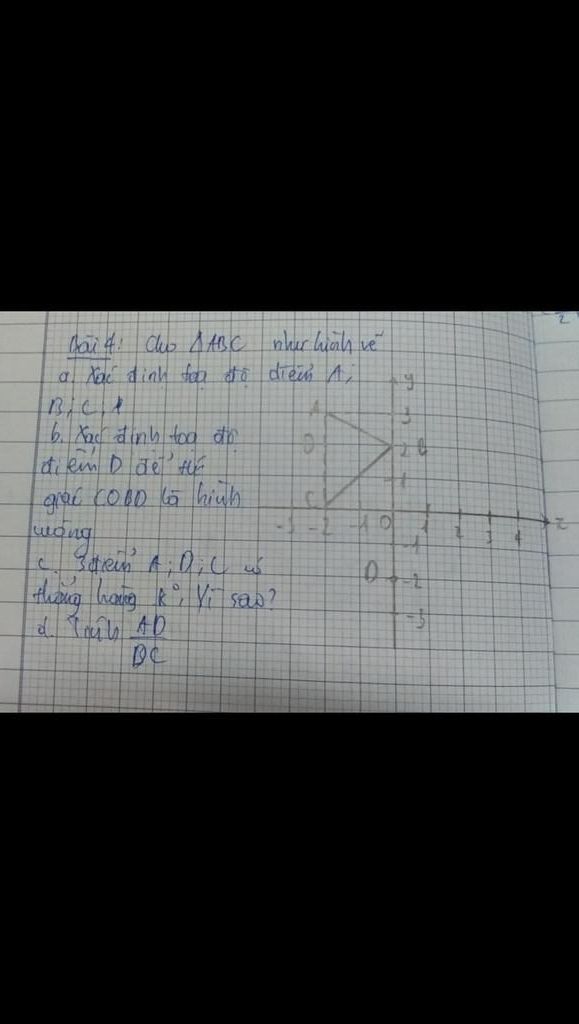 Bài 4: Cho ΔABC như hình vẽ
a. Xác định toạ độ điểm A;
B; C;
b. Xác định toạ độ
điểm D để tứ
giác COBD là hình
vuông
c. 3 điểm A; D; C có
thẳng hàng k°, Vì sao?
d. Tính AD
DC
y
A 3
D 2 B
1
C
-3 -2 -1 0 1 2 3 4 x
-1
D -2
-3
2